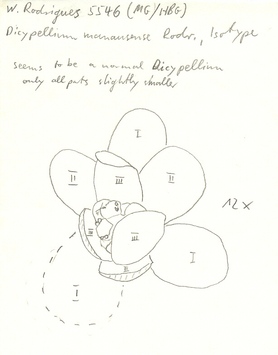 W. Rodrigues 5546 (MG/HBG)
Dicypellium manausense Rodr., Isotype
seems to be a normal Dicypellium
only all parts slightly smaller
I
II
III
II
12x
III
III
I
II
I